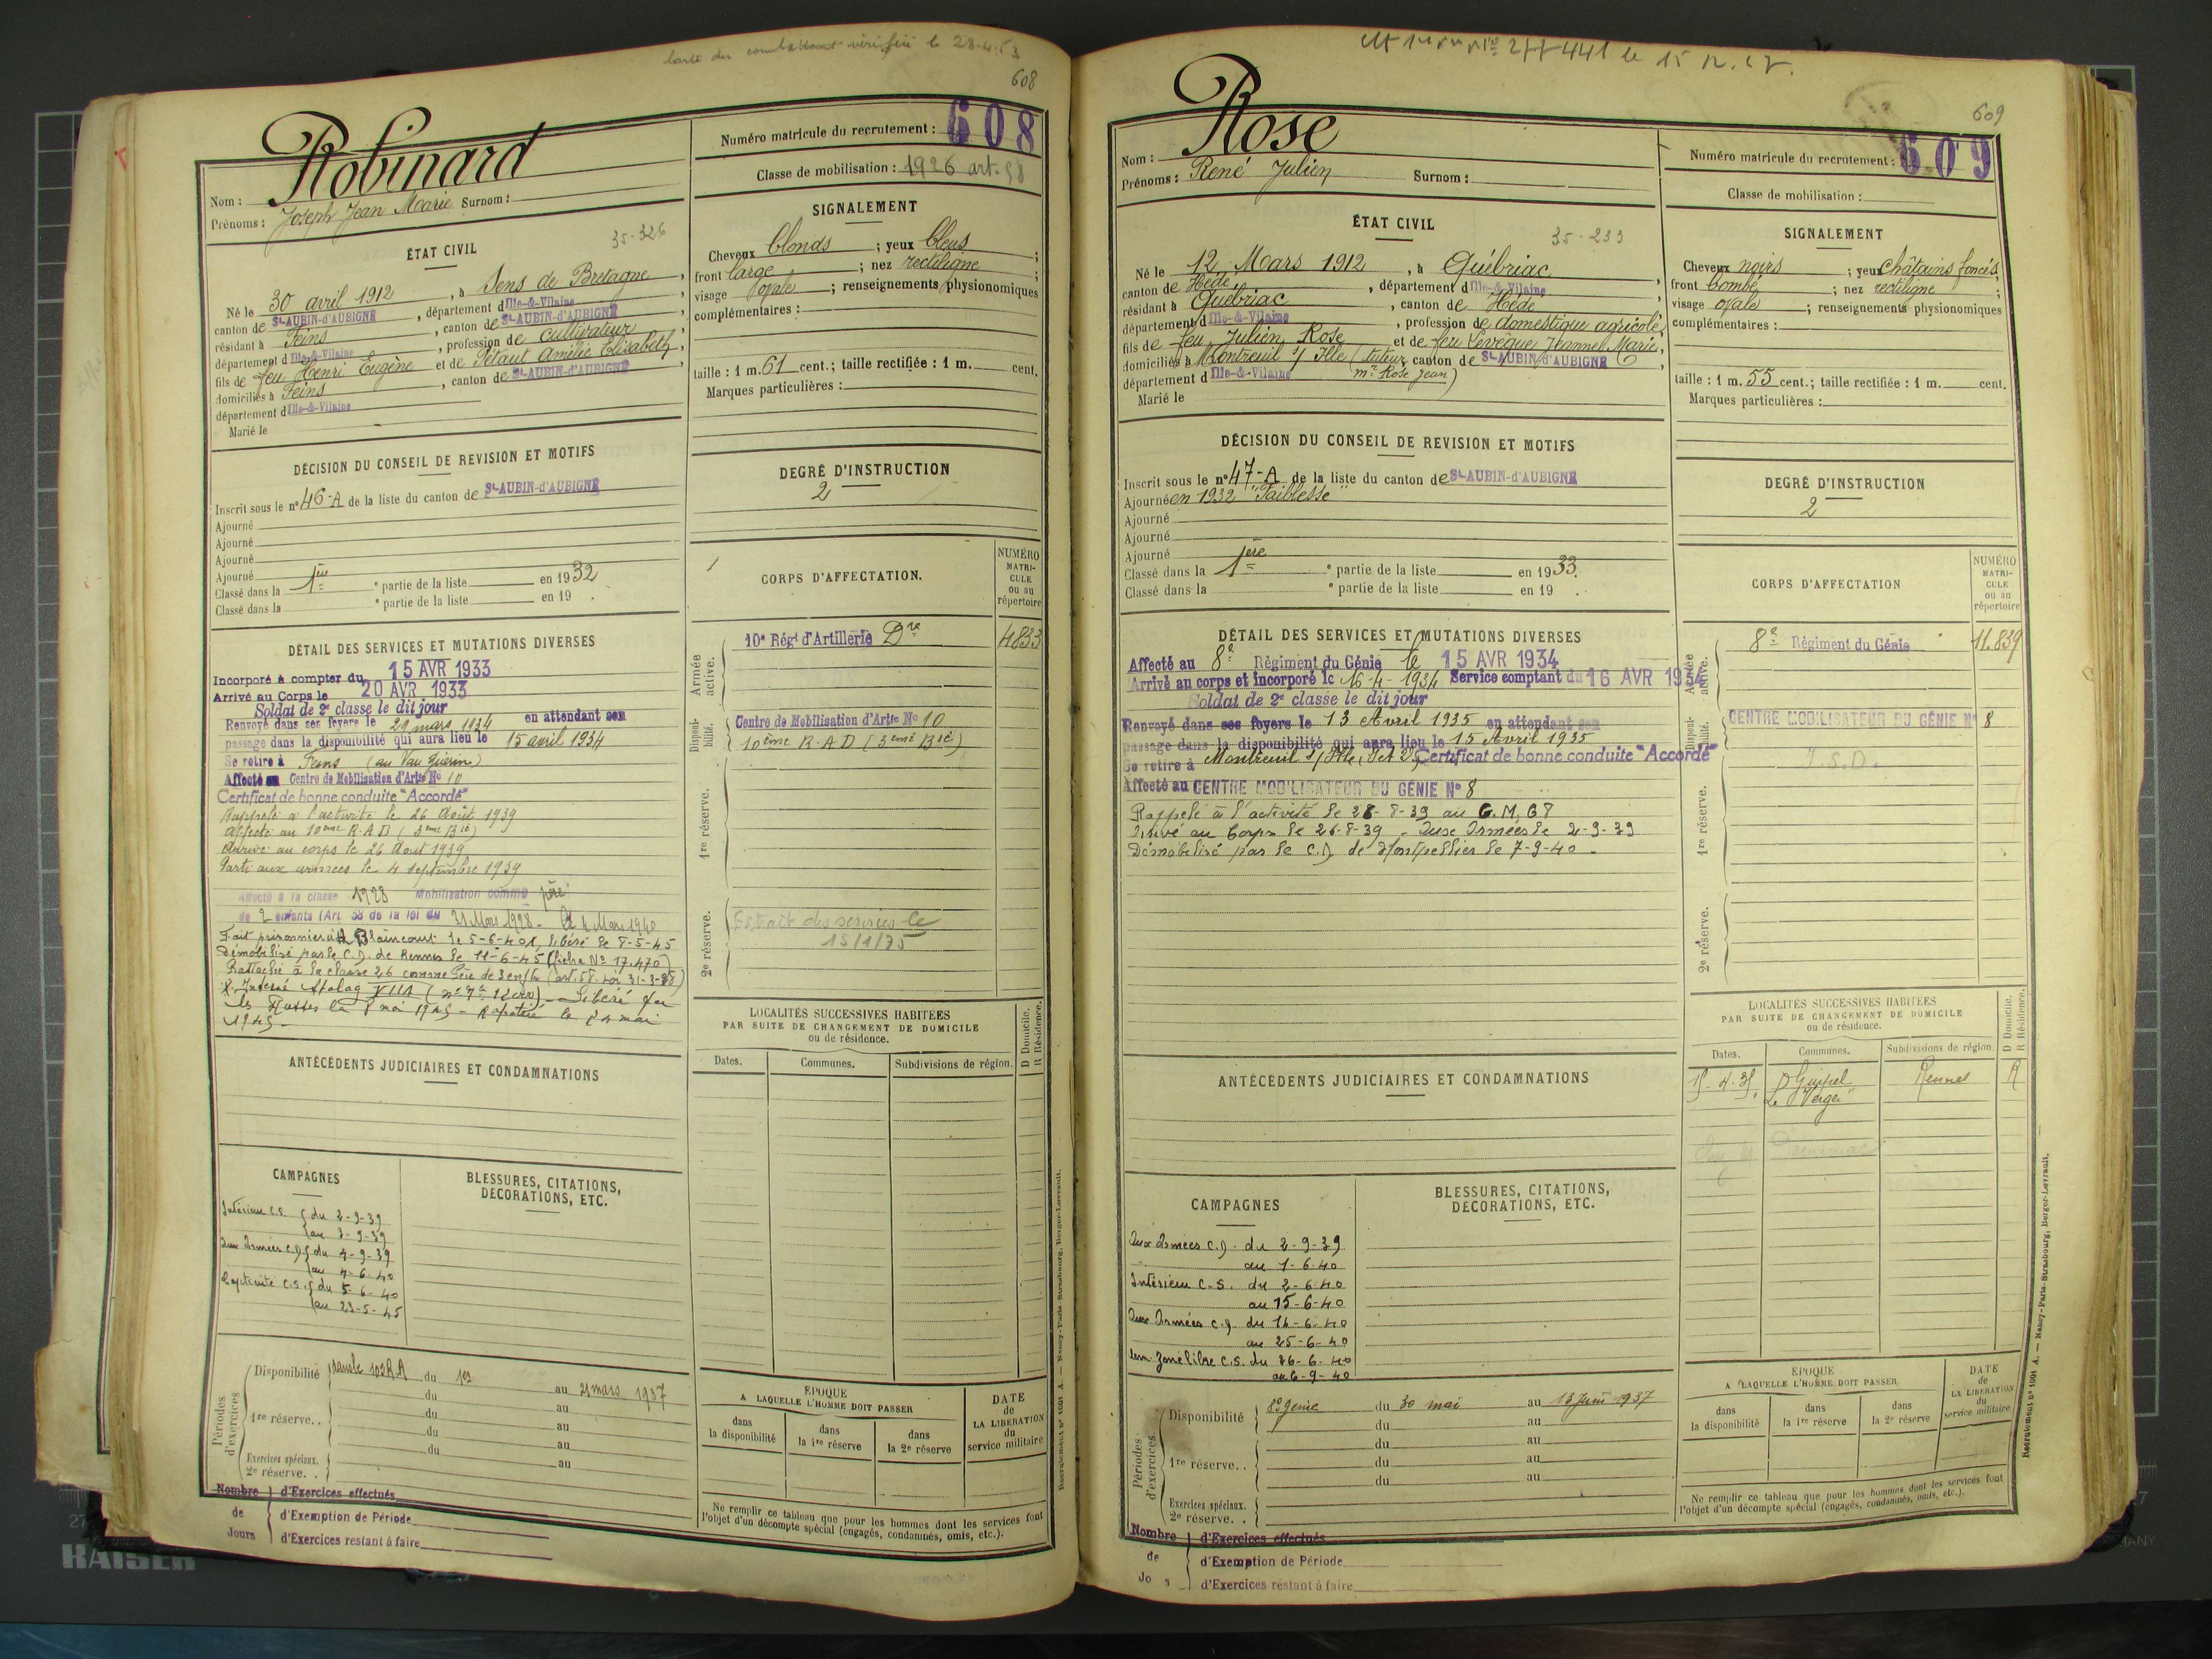 Carte du combattant vérifiée le 28-4-53
608
Robinard
Nom :
Prénoms : Joseph Jean Marie Surnom :
Numéro matricule du recrutement : 608
Classe de mobilisation : 1926 art. 58
ÉTAT CIVIL
35-326
Né le 30 avril 1912, à Sens de Bretagne,
canton de St-AUBIN-d'AUBIGNÉ, département d Ille-&-Vilaine,
résidant à Feins, canton de St-AUBIN-d'AUBIGNÉ,
département d Ille-&-Vilaine, profession de cultivateur,
fils de feu Henri Eugène et de Pétaut Amélie Elisabeth,
domiciliés à Feins, canton de St-AUBIN-d'AUBIGNÉ,
département d Ille-&-Vilaine
Marié le
SIGNALEMENT
Cheveux blonds ; yeux bleus ;
front large ; nez rectiligne ;
visage ovale ; renseignements physionomiques
complémentaires :
taille : 1 m. 61 cent.; taille rectifiée : 1 m. cent.
Marques particulières :
DÉCISION DU CONSEIL DE REVISION ET MOTIFS
Inscrit sous le n° 46-A de la liste du canton de St-AUBIN-d'AUBIGNÉ
Ajourné
Ajourné
Ajourné
Ajourné
Classé dans la 1ère e partie de la liste en 1932
Classé dans la e partie de la liste en 19 .
DEGRÉ D'INSTRUCTION
2
CORPS D'AFFECTATION.
NUMÉRO
MATRI-
CULE
ou au
répertoire
Armée active.
10e Régt d'Artillerie Dre 4833
Disponi-bilité.
Centre de Mobilisation d'Artie N° 10
10ème R.A.D (3ème Bie)
1re réserve.
2e réserve.
Extrait des services le
15/1/75
DÉTAIL DES SERVICES ET MUTATIONS DIVERSES
Incorporé à compter du 15 AVR 1933
Arrivé au Corps le 20 AVR 1933
Soldat de 2e classe le dit jour
Renvoyé dans ses foyers le 29 mars 1934 en attendant son
passage dans la disponibilité qui aura lieu le 15 avril 1934
Se retire à Feins (au Vau Guérin)
Affecté au Centre de Mobilisation d'Artie N° 10
Certificat de bonne conduite "Accordé"
Rappelé à l'activité le 26 Août 1939
affecté au 10ème R.A.D (3ème Bie)
Arrivé au corps le 26 Août 1939
Parti aux armées le 4 septembre 1939
Affecté à la classe 1928 Mobilisation comme père
de 2 enfants (Art 58 de la loi du 31 Mars 1928 - Le 4 Mars 1940
Fait prisonnier à Blaincourt le 5-6-40, libéré le 8-5-45
Démobilisé par le C.D. de Rennes le 11-6-45 (fiche N° 17.470)
Rattaché à la classe 26 comme Père de 3 enfts (art. 58 loi 31-3-28)
Interné Stalag - Libéré par
les Russes le 8 mai 1945 - Rapatrié le 24 mai
1945 -
ANTÉCÉDENTS JUDICIAIRES ET CONDAMNATIONS
LOCALITÉS SUCCESSIVES HABITÉES
PAR SUITE DE CHANGEMENT DE DOMICILE
ou de résidence.
D Domicile.
R Résidence.
Dates. Communes. Subdivisions de région.
CAMPAGNES
Intérieur C.S. du 2-9-39
au 3-9-39
Aux Armées C.D. du 4-9-39
au 4-6-40
Captivité C.S. du 5-6-40
au 23-5-45
BLESSURES, CITATIONS,
DÉCORATIONS, ETC.
Périodes d'exercices
Disponibilité du 1er au 21 mars 1937
du au
1re réserve. . du au
du au
Exercices spéciaux. du au
2e réserve. .
ÉPOQUE
A LAQUELLE L'HOMME DOIT PASSER
dans
la disponibilité
dans
la 1re réserve
dans
la 2e réserve
DATE
de
LA LIBÉRATION
du
service militaire
Ne remplir ce tableau que pour les hommes dont les services font
l'objet d'un décompte spécial (engagés, condamnés, omis, etc.).
Nombre d'Exercices effectués
de d'Exemption de Période
Jours d'Exercices restant à faire
Recrutement n° 1001 A. — Nancy-Paris-Strasbourg, Berger-Levrault.
609
Rose
Nom :
Prénoms : René Julien Surnom :
Numéro matricule du recrutement : 609
Classe de mobilisation :
ÉTAT CIVIL
35-233
Né le 12 Mars 1912, à Québriac
canton de Hédé, département d Ille-&-Vilaine,
résidant à Québriac, canton de Hédé
département d Ille-&-Vilaine, profession de domestique agricole,
fils de feu Julien Rose et de feu Levêque Jeanne Marie,
domiciliés à Montreuil s/ Ille (tuteur canton de St-AUBIN-d'AUBIGNÉ
département d Ille-&-Vilaine Mr Rose Jean)
Marié le
SIGNALEMENT
Cheveux noirs ; yeux châtains foncés,
front bombé ; nez rectiligne ;
visage ovale ; renseignements physionomiques
complémentaires :
taille : 1 m. 55 cent.; taille rectifiée : 1 m. cent.
Marques particulières :
DÉCISION DU CONSEIL DE REVISION ET MOTIFS
Inscrit sous le n° 47-A de la liste du canton de St-AUBIN-d'AUBIGNÉ
Ajourné en 1932 "Faiblesse"
Ajourné
Ajourné
Ajourné
Classé dans la 1ère e partie de la liste en 1933.
Classé dans la e partie de la liste en 19 .
DEGRÉ D'INSTRUCTION
2
CORPS D'AFFECTATION
NUMÉRO
MATRI-
CULE
ou au
répertoire
Armée active.
8e Régiment du Génie 11.839
Disponi-bilité.
CENTRE MOBILISATEUR DU GÉNIE N° 8
J.S.D.
1re réserve.
2e réserve.
DÉTAIL DES SERVICES ET MUTATIONS DIVERSES
Affecté au 8e Régiment du Génie le 15 AVR 1934
Arrivé au corps et incorporé le 16-4-1934 Service comptant du 16 AVR 1934
Soldat de 2e classe le dit jour
Renvoyé dans ses foyers le 13 Avril 1935 en attendant son
passage dans la disponibilité qui aura lieu le 15 Avril 1935
Se retire à Montreuil s/ Ille, I et V, Certificat de bonne conduite "Accordé"
Affecté au CENTRE MOBILISATEUR DU GÉNIE N° 8
Rappelé à l'activité le 26-8-39 au C.M.G 8
Arrivé au Corps le 26-8-39 - Aux Armées le 2-9-39
Démobilisé par le C.D. de Montpellier le 7-9-40 -
ANTÉCÉDENTS JUDICIAIRES ET CONDAMNATIONS
LOCALITÉS SUCCESSIVES HABITÉES
PAR SUITE DE CHANGEMENT DE DOMICILE
ou de résidence.
D Domicile.
R Résidence.
Dates. Communes. Subdivisions de région.
15-4-35, Guipel Rennes R
Le Verger
CAMPAGNES
Aux Armées C.D. du 2-9-39
au 1-6-40
Intérieur C.S. du 2-6-40
au 15-6-40
Aux Armées C.D. du 16-6-40
au 25-6-40
zone libre C.S. du 26-6-40
au 6-9-40
BLESSURES, CITATIONS,
DÉCORATIONS, ETC.
Périodes d'exercices
Disponibilité 8e génie du 30 mai au 13 Juin 1937
du au
1re réserve. . du au
du au
du au
Exercices spéciaux.
2e réserve. .
ÉPOQUE
A LAQUELLE L'HOMME DOIT PASSER
dans
la disponibilité
dans
la 1re réserve
dans
la 2e réserve
DATE
de
LA LIBÉRATION
du
service militaire
Ne remplir ce tableau que pour les hommes dont les services font
l'objet d'un décompte spécial (engagés, condamnés, omis, etc.).
Nombre d'Exercices effectués
de d'Exemption de Période
d'Exercices restant à faire
Recrutement n° 1001 A. — Nancy-Paris-Strasbourg, Berger-Levrault.
KAISER